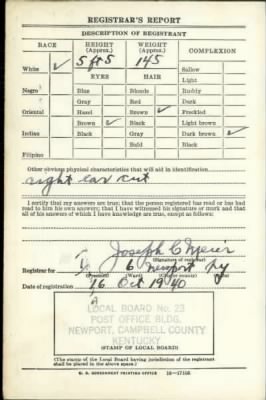 REGISTRAR'S REPORT
DESCRIPTION OF REGISTRANT
RACE HEIGHT (Approx.) WEIGHT (Approx.) COMPLEXION
White ✓ 5 ft 5 145 Sallow
EYES HAIR Light
Negro Blue Blonde Ruddy
Gray Red Dark
Oriental Hazel Brown ✓ Freckled
Brown ✓ Black Light brown
Indian Black Gray Dark brown ✓
Bald Black
Filipino
Other obvious physical characteristics that will aid in identification
right ear cut
I certify that my answers are true; that the person registered has read or has had
read to him his own answers; that I have witnessed his signature or mark and that
all of his answers of which I have knowledge are true, except as follows:
Joseph C Meier
(Signature of registrar)
Registrar for 6 Newport Ky
(Precinct) (Ward) (City or county) (State)
Date of registration 16 Oct 1940
LOCAL BOARD No. 23
POST OFFICE BLDG.
NEWPORT, CAMPBELL COUNTY
KENTUCKY
(STAMP OF LOCAL BOARD)
(The stamp of the Local Board having jurisdiction of the registrant
shall be placed in the above space.)
U. S. GOVERNMENT PRINTING OFFICE 16—17105